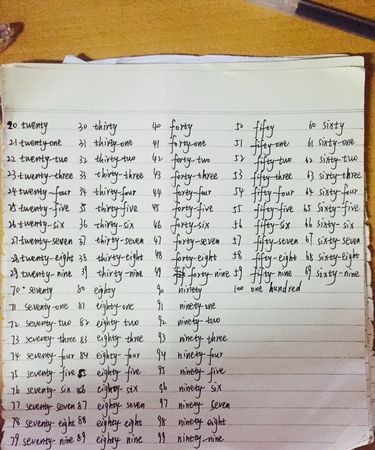 20 twenty 30 thirty 40 forty 50 fifty 60 sixty
21 twenty-one 31 thirty-one 41 forty-one 51 fifty-one 61 sixty-one
22 twenty-two 32 thirty-two 42 forty-two 52 fifty-two 62 sixty-two
23 twenty-three 33 thirty-three 43 forty-three 53 fifty-three 63 sixty-three
24 twenty-four 34 thirty-four 44 forty-four 54 fifty-four 64 sixty-four
25 twenty-five 35 thirty-five 45 forty-five 55 fifty-five 65 sixty-five
26 twenty-six 36 thirty-six 46 forty-six 56 fifty-six 66 sixty-six
27 twenty-seven 37 thirty-seven 47 forty-seven 57 fifty-seven 67 sixty-seven
28 twenty-eight 38 thirty-eight 48 forty-eight 58 fifty-eight 68 sixty-eight
29 twenty-nine 39 thirty-nine 49 forty-nine 59 fifty-nine 69 sixty-nine
70 seventy 80 eighty 90 ninety 100 one hundred
71 seventy-one 81 eighty-one 91 ninety-one
72 seventy-two 82 eighty-two 92 ninety-two
73 seventy-three 83 eighty-three 93 ninety-three
74 seventy-four 84 eighty-four 94 ninety-four
75 seventy-five 85 eighty-five 95 ninety-five
76 seventy-six 86 eighty-six 96 ninety-six
77 seventy-seven 87 eighty-seven 97 ninety-seven
78 seventy-eight 88 eighty-eight 98 ninety-eight
79 seventy-nine 89 eighty-nine 99 ninety-nine